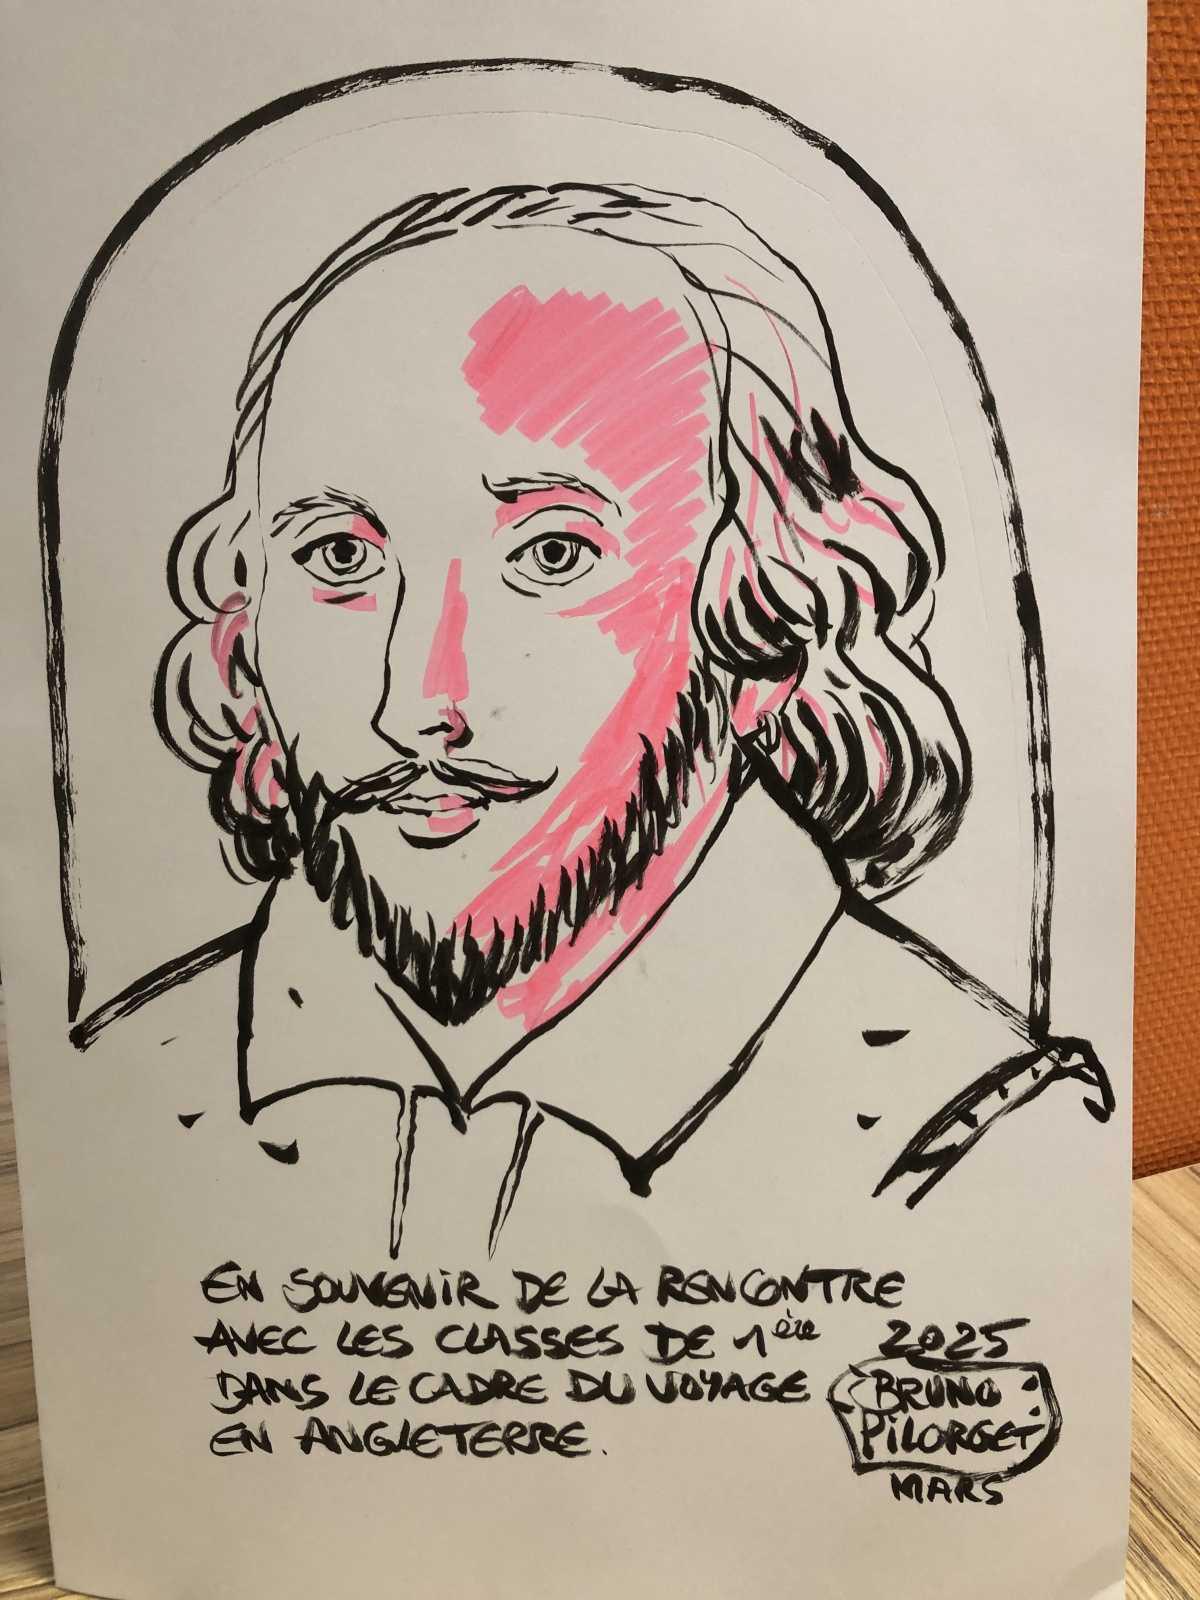 EN SOUVENIR DE LA RENCONTRE
AVEC LES CLASSES DE 1ère
DANS LE CADRE DU VOYAGE
EN ANGLETERRE.
2025
BRUNO
PILORGET
MARS